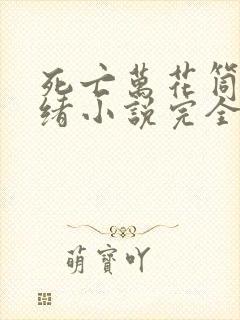 死亡萬花筒
緒小說完全
萌寶吖